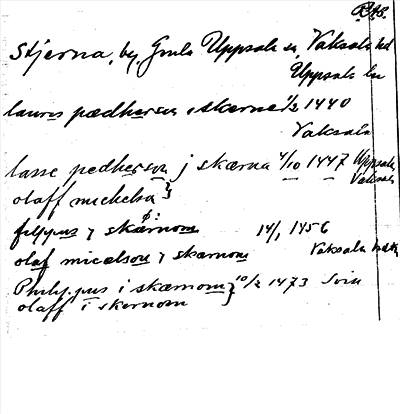 Stjerna, by, Gamla Uppsala sn, Vaksala hd
Uppsala län
laurens pædherson i skærne 1/2 1440
Vaksala
lasse pedherson j skærna 4/10 1447 Uppsala
olaff michelsa } Vaksala
filippus j skærnom 14/1 1456
olaf micælson j skærnom Vaksala hd
Philippus i skærnom } 10/2 1473
olaff i skernom